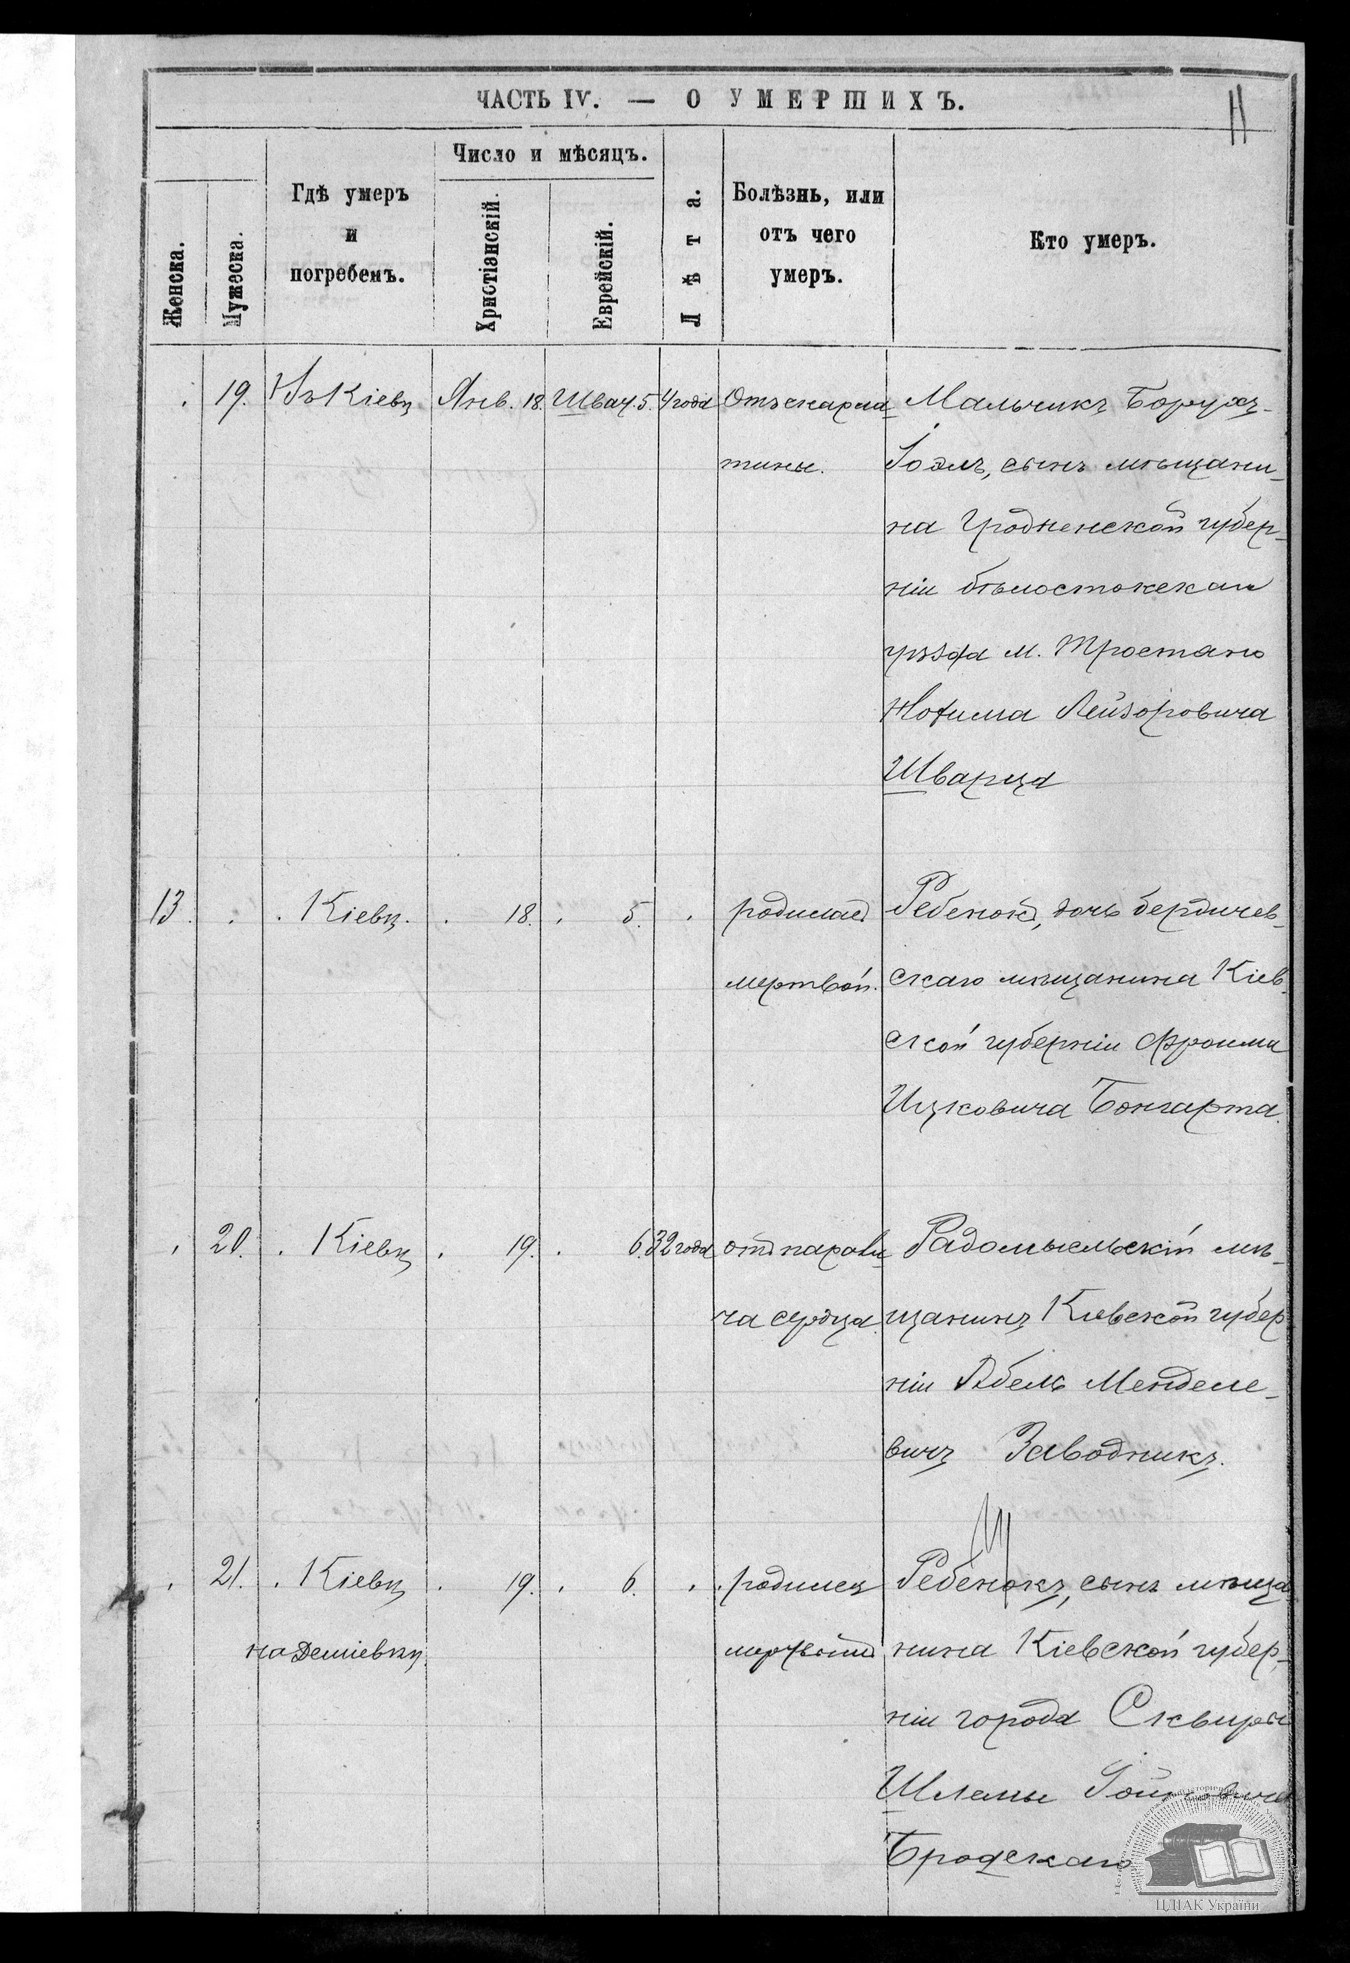 ЧАСТЬ IV. — О УМЕРШИХЪ.
Женска.
Мужеска.
Гдѣ умеръ
и
погребенъ.
Число и мѣсяцъ.
Христіанскій.
Еврейскій.
Лѣта.
Болѣзнь, или
отъ чего
умеръ.
Кто умеръ.
. 19. Въ Кіевѣ Янв. 18. Шват. 5. 4 года Отъ скарла- Мальчикъ Борухъ-
тины. Іоэлъ, сынъ мѣщани-
на Гродненской губер-
ніи бѣлостокскаго
уѣзда м. Тростяно
Лейзоровича
Шварца
13. . . Кіевѣ. . 18. . 5. . родилась Ребенокъ, дочь бердичев-
мертвой. скаго мѣщанина Кіев-
ской губерніи Фроима
Ицковича Бонгарта.
. 20. . Кіевѣ . 19. . 6. 32 года отъ парали- Радомысльскій мѣ-
ча сердца. щанинъ Кіевской губер
ніи Абель Менделе-
вичъ Заводникъ.
. 21. . Кіевѣ . 19. . 6. . . родился Ребенокъ, сынъ мѣща
на Деміевкѣ. мертвымъ нина Кіевской губер-
ніи города Сквиры
Шлемы
Бродскаго
ЦДІАК України